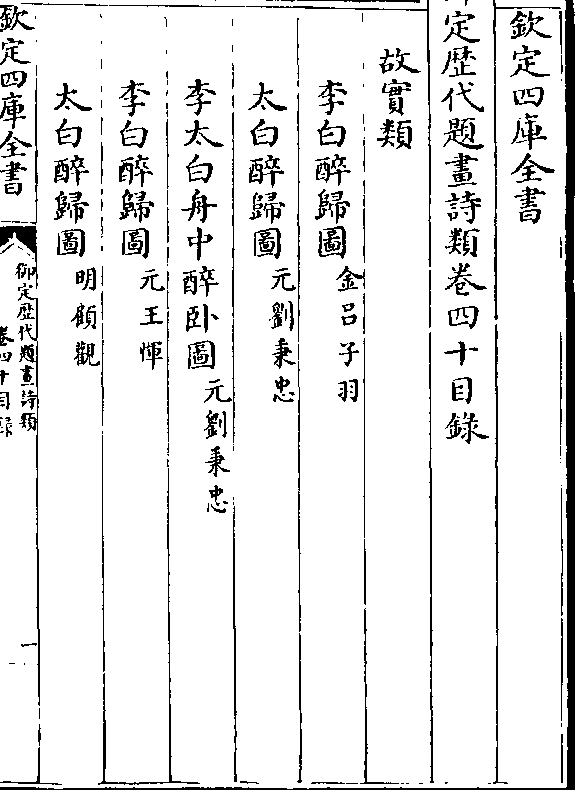 欽定四庫全書
定歴代題畫詩類卷四十目錄
故實類
李白醉歸圖金吕子羽
太白醉歸圖元劉秉忠
李太白舟中醉卧圖元劉秉忠
李白醉歸圖元王惲
太白醉歸圖明顧觀
欽定四庫全書
御定歴代題畫詩類
卷四十目録
一